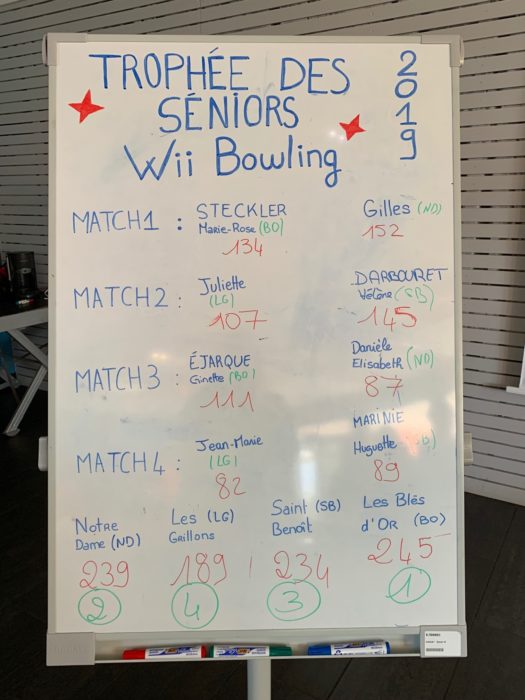 TROPHÉE DES
SÉNIORS
Wii Bowling
2019
MATCH1 : STECKLER
Marie-Rose (BO)
134
Gilles (ND)
152
MATCH2 : Juliette
(LG)
107
DARBOURET
Hélène (SB)
145
MATCH3 : ÉJARQUE
Ginette (BO)
111
Danièle
Elisabeth (ND)
87
MATCH4 : Jean-Marie
(LG)
82
MARINIE
Huguette (SB)
89
NOTRE
Dame (ND)
239
2
Les (LG)
Grillons
189
4
Saint (SB)
Benoît
234
3
Les Blés
d'OR (BO)
245
1